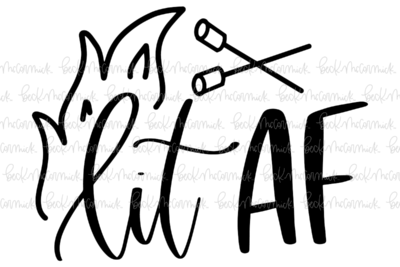 lit AF